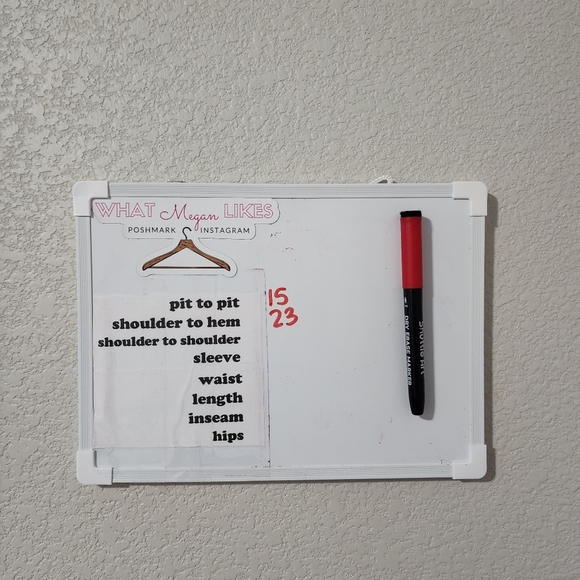 WHAT Megan LIKES
POSHMARK INSTAGRAM
pit to pit 15
shoulder to hem 23
shoulder to shoulder
sleeve
waist
length
inseam
hips
DRY ERASE MARKER